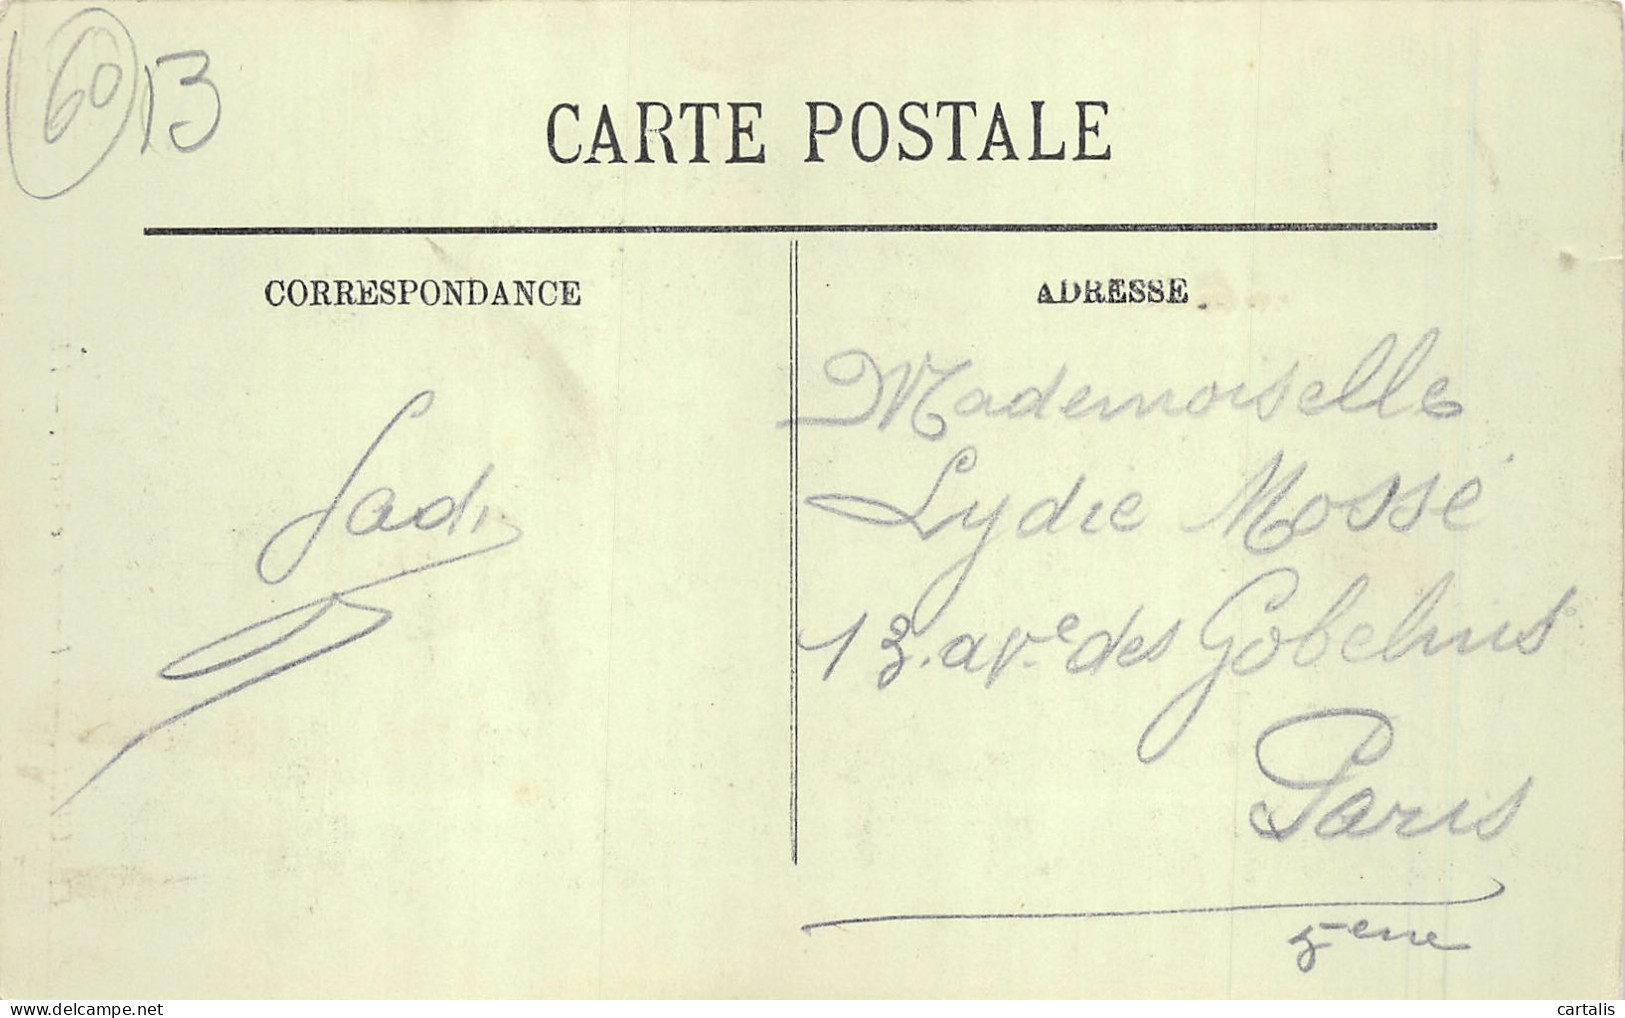 60 13
CARTE POSTALE
CORRESPONDANCE
ADRESSE
Sadi
Mademoiselle
Lydie Mossé
13. av.e des Gobelins
Paris
5eme
cartalis